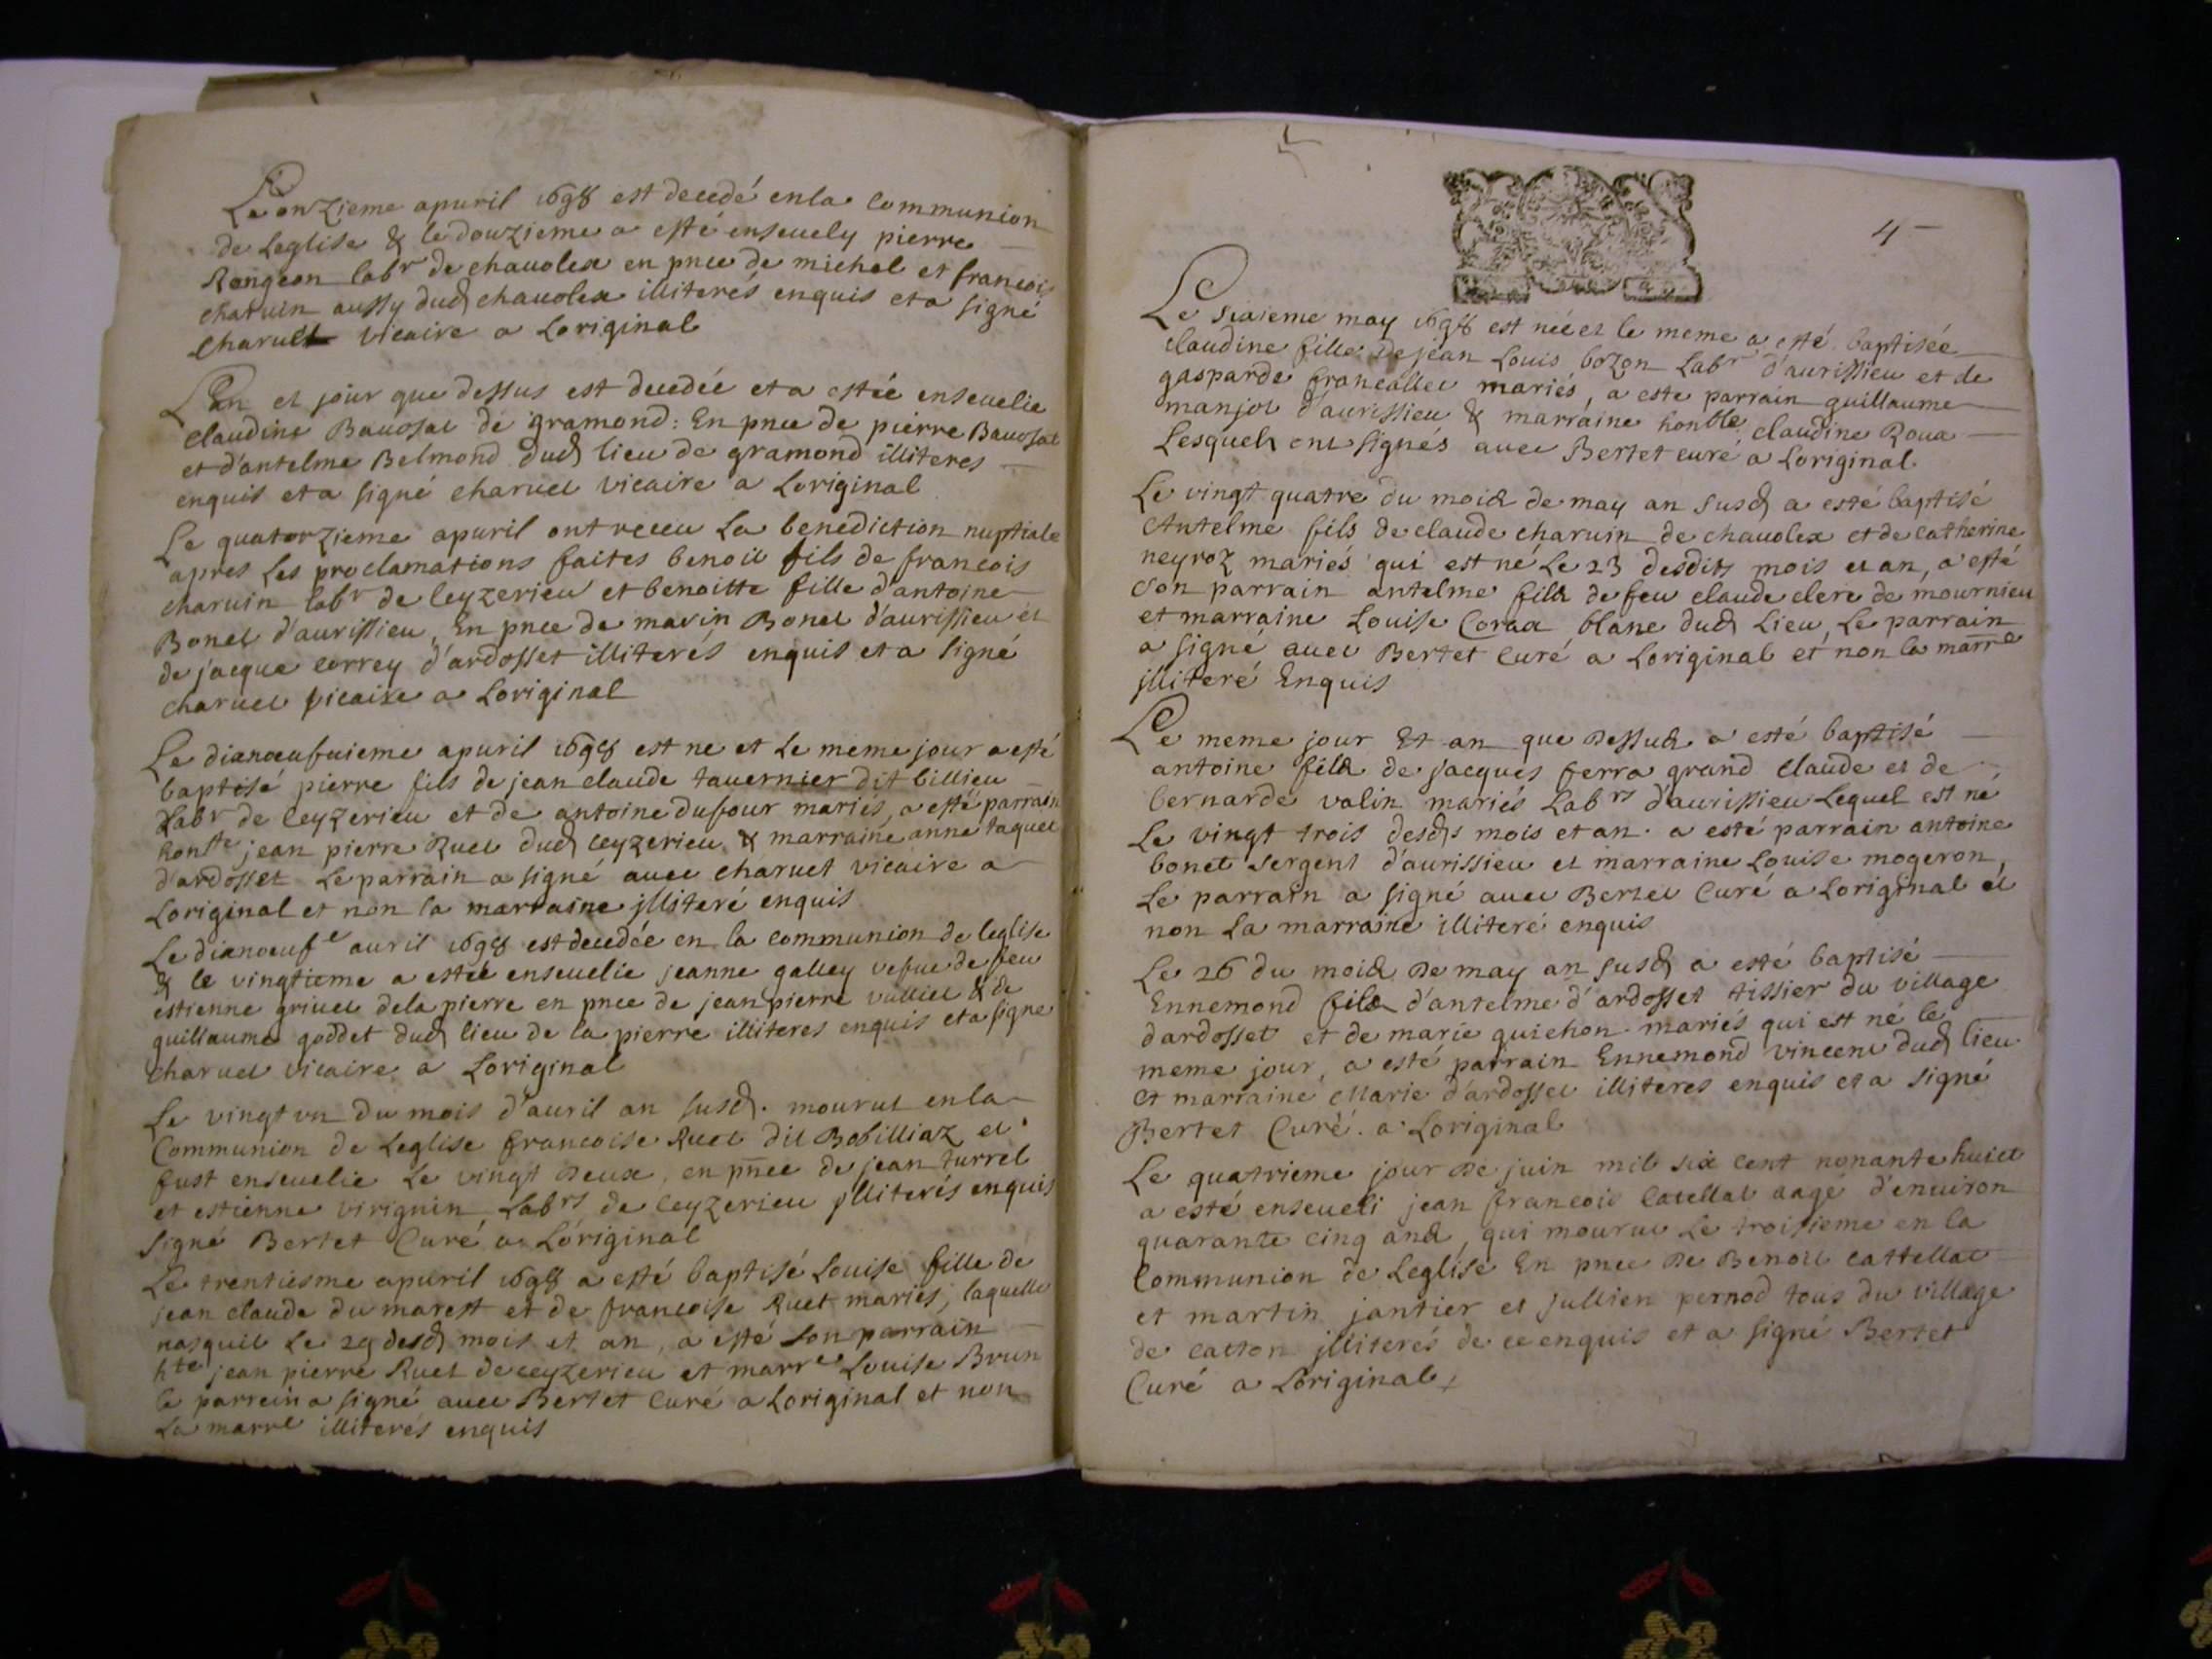 Le onzieme apuril 1698 est decedé en la communion
de Leglise & le douzieme a esté enseuely pierre
Rongeon labr de chauolex en pnce de michel et francois
charuin aussy dud chauolex illiterés enquis et a signé
Charuet vicaire a Loriginal
L'an et jour que dessus est decedée et a estée enseuelie
claudine Bauosat de gramond: En pnce de pierre Bauosat
et d'antelme Belmond dud lieu de gramond illiteres
enquis et a signé charuet vicaire a Loriginal
Le quatorzieme apuril ont receu La benediction nuptiale
apres Les proclamations faites benoit fils de francois
charuin labr de leyzerieu et benoitte fille d'antoine
Bonet d'aurissieu, En pnce de marin Bonet d'aurissieu et
de jacque correy d'ardosset illiterés enquis et a signé
charuet vicaire a Loriginal
Le dixnoeufuieme apuril 1698 est ne et Le meme jour a esté
baptisé pierre fils de jean claude tauernier dit billieu
Labr de ceyzerieu et de antoine dufour mariés, a esté parrain
honste jean pierre Ruet dud ceyzerieu & marraine anne taquet
d'ardosset Le parrain a signé auec charuet vicaire a
Loriginal et non la marraine illiteré enquis
Le dixnoeufe auril 1698 est decedée en la communion de leglise
& le vingtieme a estée enseuelie jeanne galley vefue de feu
estienne griuet dela pierre en pnce de jean pierre vulliet & de
guillaume goddet dud lieu de la pierre illiteres enquis et a signe
charuet vicaire a Loriginal
Le vingt vn du mois d'auril an susd. mourut en la
Communion de Leglise francoise Ruet dit Bobilliaz et
fust enseuelie Le vingt deux, en pnce de jean turrel
et estienne virignin Labrs de ceyzerieu illiterés enquis
signé Bertet Curé a Loriginal
Le trentiesme apuril 1698 a esté baptisé Louise fille de
jean claude du marest et de francoise Ruet mariés, laquelle
nasquit Le 29 desd mois et an, a esté son parrain
hte jean pierre Ruet de ceyzerieu et marre Louise Brun
le parrein a signé auec Bertet Curé a Loriginal et non
La marre illiterés enquis
4
Le sixieme may 1698 est née et le meme a esté baptisée
claudine fille de jean Louis bozon Labr d'aurissieu et de
gasparde francallet mariés, a este parrain guillaume
manjot d'aurissieu & marraine honble claudine Roux
Lesquels ont signés auec Bertet curé a Loriginal
Le vingt quatre du mois de may an susd a esté baptisé
Antelme fils de claude charuin de chauolex et de catherine
neyroz mariés qui est né Le 23 desdits mois et an, a esté
son parrain antelme fils de feu claude clerc de mournieu
et marraine Louise Corax blanc dud Lieu, Le parrain
a signé auec Bertet Curé a Loriginal et non la marre
illiteré Enquis
Le meme jour Et an que Dessus a esté baptisé
antoine fils de jacques ferra grand claude et de
bernarde valin mariés Labrs d'aurissieu Lequel est né
Le vingt trois desds mois et an. a esté parrain antoine
bonet sergent d'aurissieu et marraine Louise mogeron,
Le parrain a signé auec Bertet Curé a Loriginal et
non La marraine illiteré enquis
Le 26 du mois De may an susd a esté baptisé
Ennemond fils d'antelme d'ardosset tissier du village
dardosset et de marie guichon mariés qui est né le
meme jour, a esté parrain Ennemond vincent dud lieu
et marraine Marie d'ardosset illiteres enquis et a signé
Bertet Curé. a Loriginal
Le quatrieme jour De juin mil six cent nonante huict
a esté enseueli jean francois Catellat aagé d'enuiron
quarante cinq ans, qui mourut Le troisieme en la
Communion de Leglise En pnce De Benoit cattellat
et martin jantier et Jullien pernod tous du village
de catton illiterés de ce enquis et a signé Bertet
Curé a Loriginal